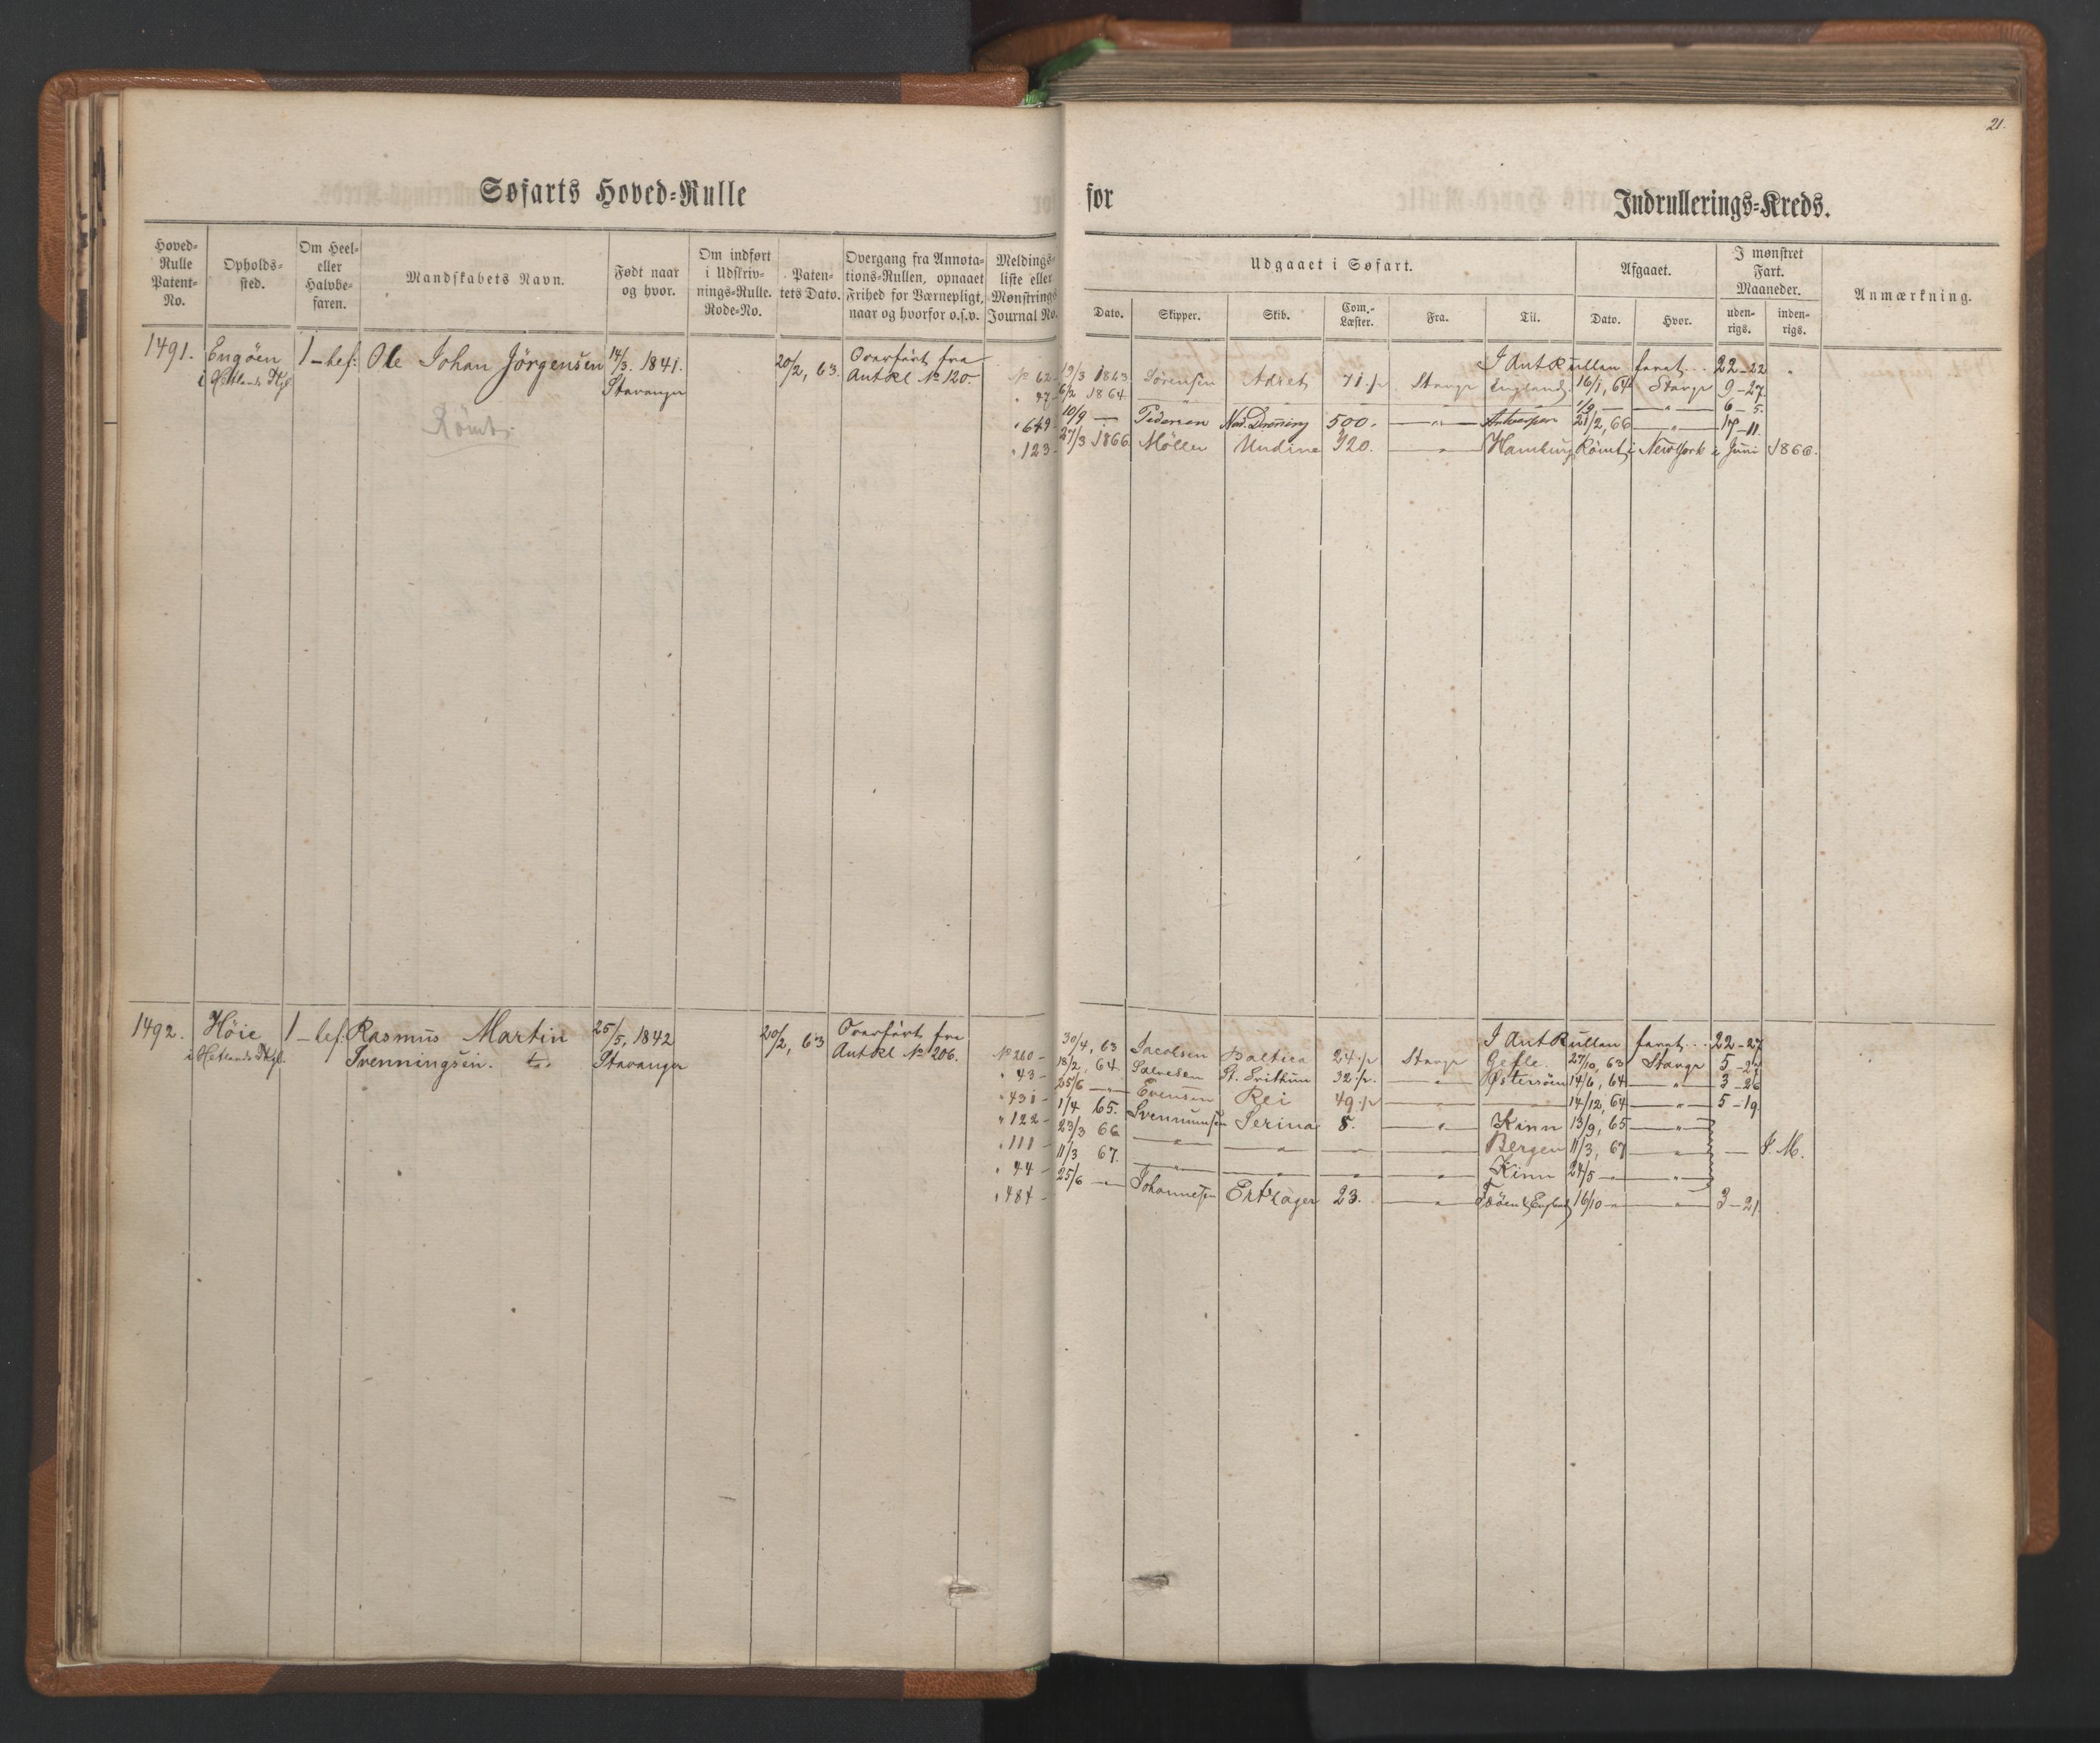 21.
Søfarts Hoved=Rulle for Indrullerings=Kreds.
Hoved=Rulle Patent=No.
Opholds=sted.
Om Heel= eller Halvbe=faren.
Mandskabets Navn.
Født naar og hvor.
Om indført i Udskriv=nings=Rulle. Rode=No.
Paten=tets Dato.
Overgang fra Annota=tions=Rullen, opnaaet Frihed for Værnepligt, naar og hvorfor o.s.v.
Meldings=liste eller Mønstrings Journal No.
Udgaaet i Søfart.
Dato. Skipper. Skib. Com.=Læster. Fra. Til.
Afgaaet.
Dato. Hvor.
I mønstret Fart. Maaneder.
uden=rigs. inden=rigs.
Anmærkning.
1491. Engøen 1 - bef: Ole Johan Jørgensen 14/3. 1841. 20/2, 63. Overført fra
i Hetlands Thgl Stavanger Ant Rl No 120.
Rømt.
I Ant Rullen faret... 22-22 "
No 62- 19/3 1863 Sørensen Adret 71.p Stavgr England 16/1, 64 Stavgr 9-27.
" 47- 6/2 1864 — " — 1/9 — " — 6-5.
" 649- 10/9 — Pedersen Nod. Dronning 500. — " — Antwerpen 21/2, 66 — " — 17-11.
" 123- 27/3 1866 Møller Undine 920. — " — Hamburg Rømt i New York i Juni 1866.
1492. Höie 1 - bef. Rasmus Martin 25/5, 1842 20/2, 63 Overført fra
i Hetlands Thgl. Svenningsen. Stavanger Ant Rl No 206.
I Ant Rullen faret... 22-27
No 260- 30/4, 63 Jacobsen Baltica 24.p Stavgr Gefle. 27/10, 63 Stavgr 5-27
" 43- 18/2, 64. Salvesen St. Svithun 32.p. — " — Østersøen 14/6, 64 — " — 3-26
" 431- 25/6 — " — Evensen Rei 49.p — " — 14/12, 64 — " — 5-19
" 122- 1/4 65. Svennumsen Serina 8. — " — Kinn 13/9, 65 — " —
" 111- 23/3 66 — " — — " — — — " — Bergen 11/3, 67 — " — — I. M.
" 44- 11/3 67. — " — — " — — " — — " — Kinn 24/5 — " — " —
" 484- 25/6 — " — Johannesen Erträger 23. — " — 16/10 — " — " — 3-21.